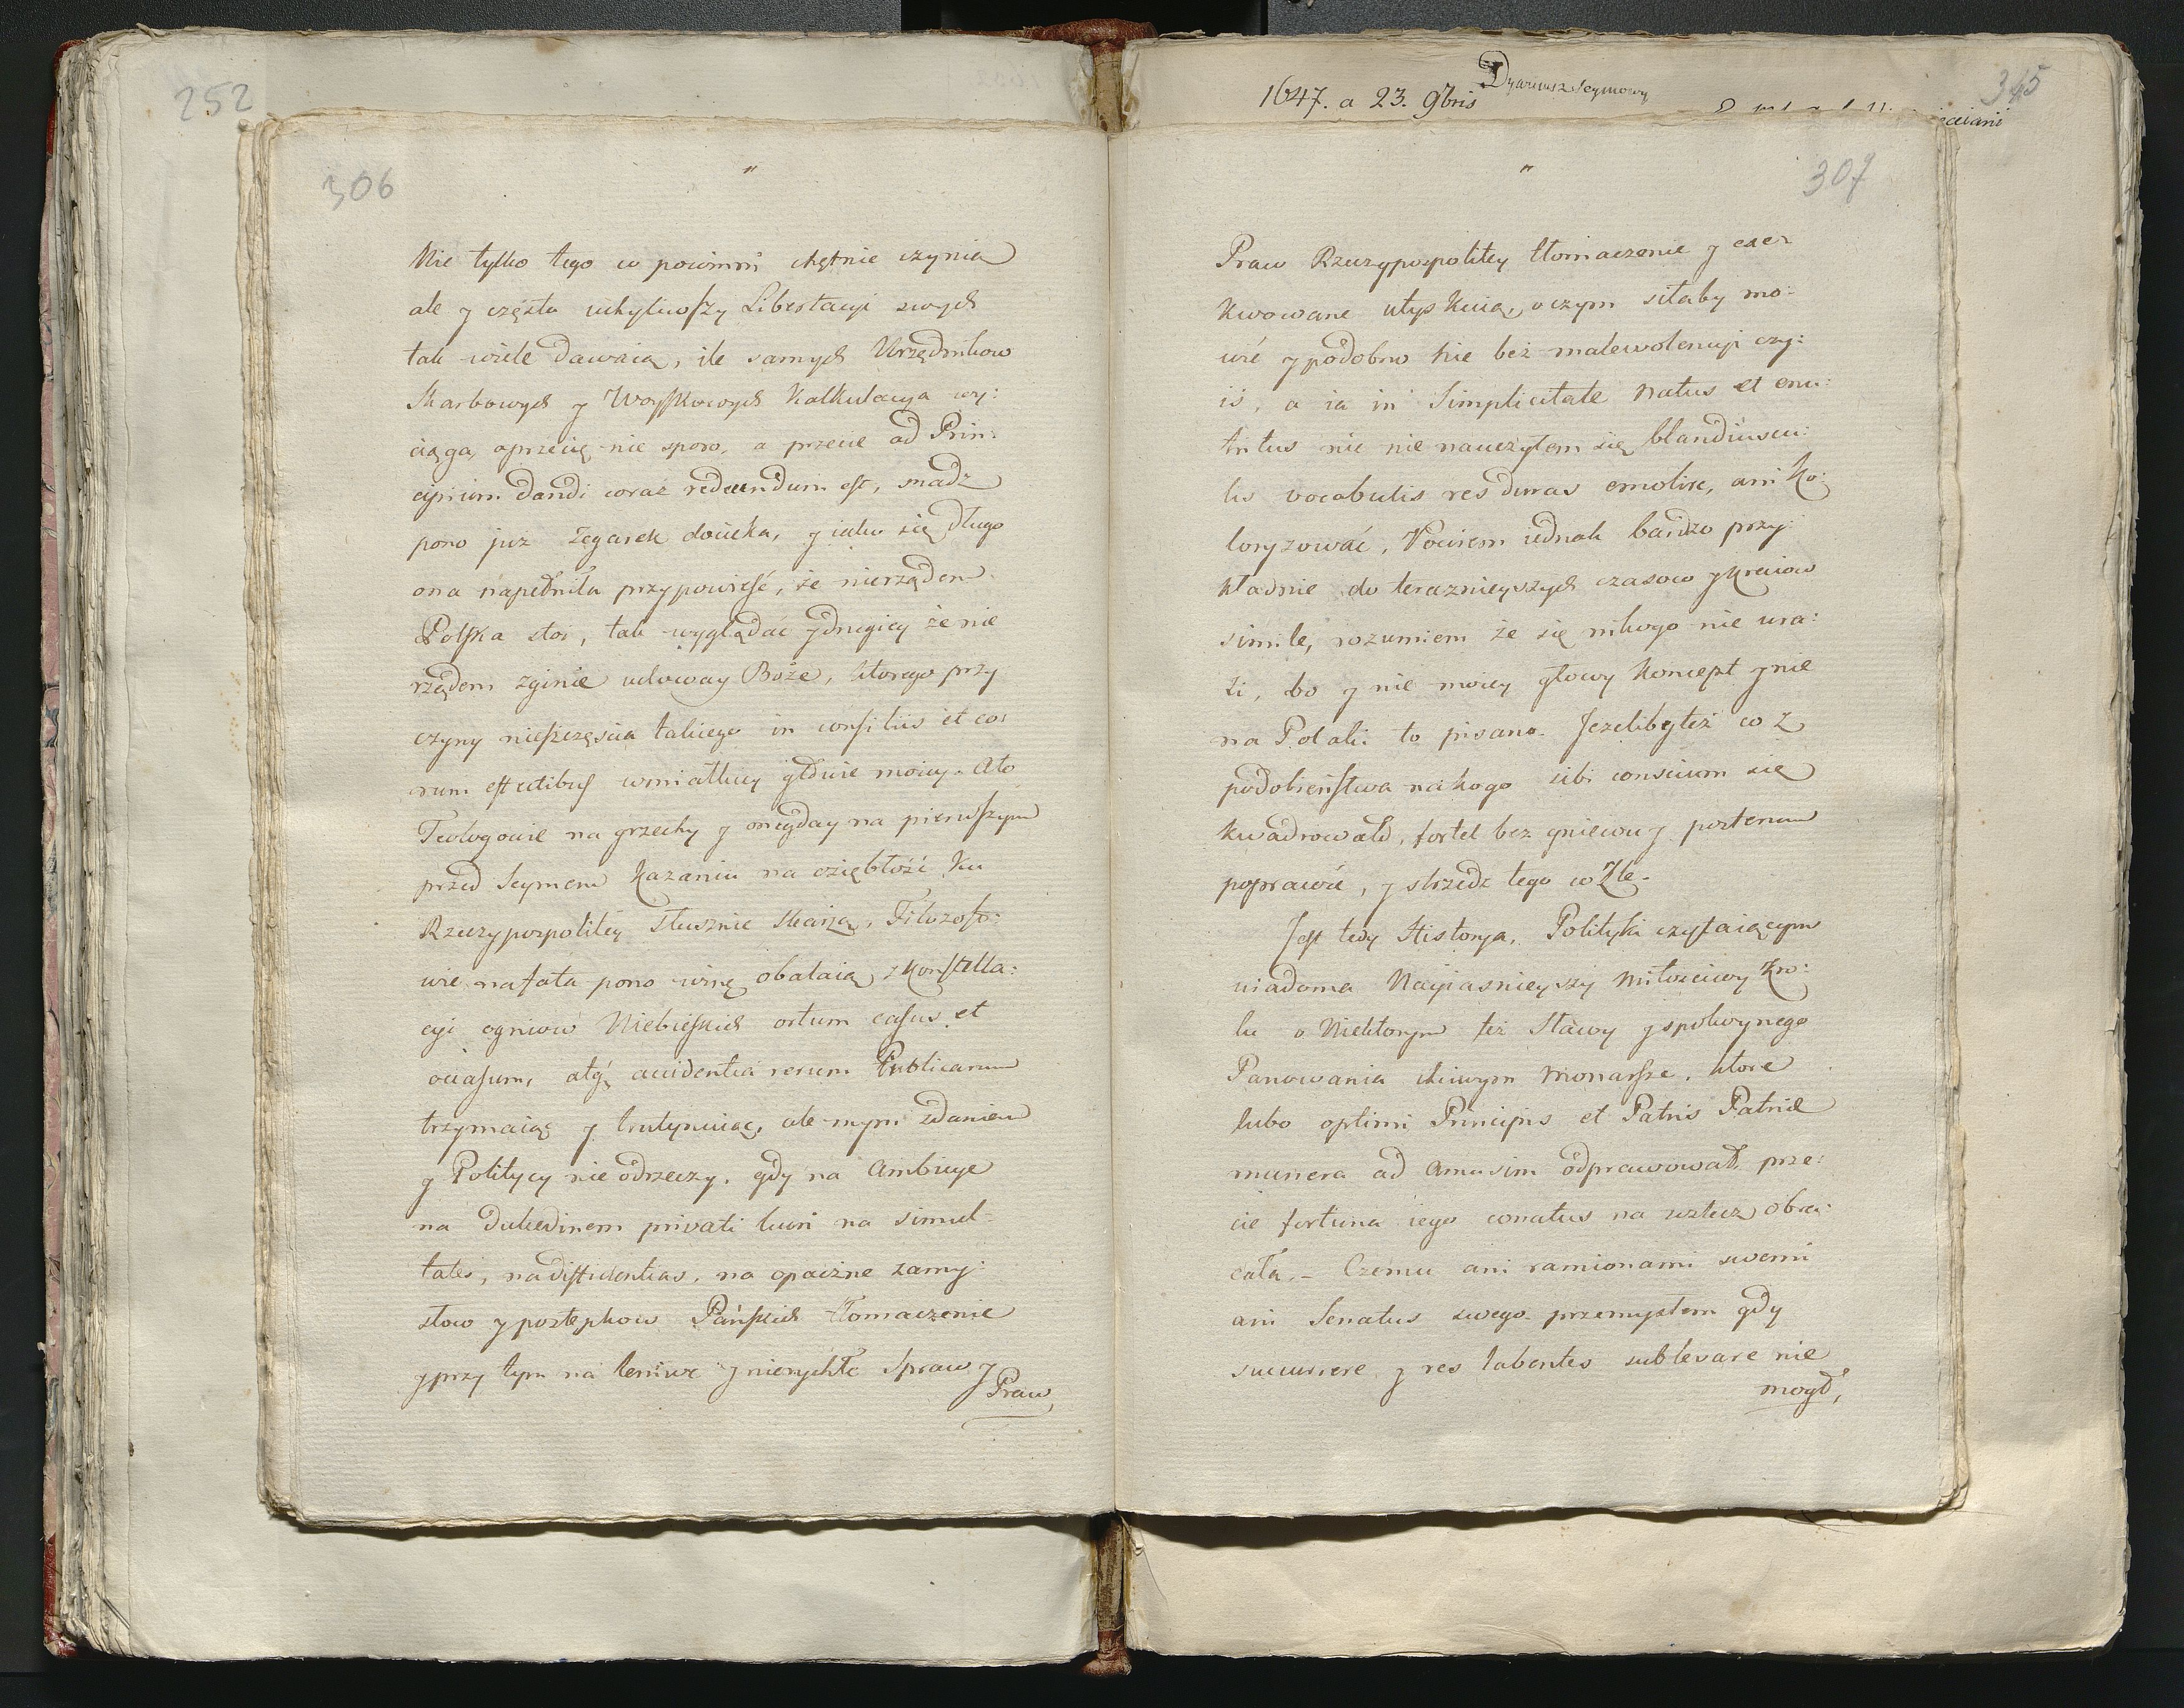 252
306
Nie tylko tego co powinni chętnie czynią
ale y często uchyliwszy Libertacyi swych
tak wiele dawaią, ile samych Urzędnikow
Skarbowych y Woyskowych Kalkulacya wy:
ciąga, aprzecię nie sporo, a przecie ad Prin:
cipium dandi coraz redeundum est, snadź
pono już zegarek docieka, y iako się długo
ona napełniła przypowieść, że nierządem
Polska stoi, tak wyglądać y drugiey że nie
rządem zginie uchoway Boże, ktorego przy
czyny nieszczęścia takiego in consiliis et co:
rum effectibus w miałkiey głowie moiey. Ato
Teologowie na grzechy y onegday na pierwszym
przed Seymem Kazaniu na oziębłość ku
Rzeczypospolitey słusznie skarżą, Filozofo:
wie na fata pono winę obalaią z Konstella:
cyi ogniow Niebieskich ortum casus et
occasum, atq; accidentia rerum Publicarum
trzymaią y trutynuiąc, ale mym zdaniem
y Politycy nie odrzeczy, gdy na Ambicye
na dulcedinem privati lucri na simul-
tates, na diffidentias, na opaczne zamy:
słow y postępkow Pańskich tłomaczenie
y przy tym na leniwe y nierychłe Spraw y
Praw
1647. a 23. 9bris
Dyariusz Seymowy
345
307
Praw Rzeczypospolitey tłomaczenie y exe:
kwowane utyskuią, oczym siłaby mo:
wić y podobno nie bez malewolencyi czy:
iś, a ia in Simplicitate natus et enu:
tritus nic nie nauczyłem się blandiuscu:
lis vocabulis res duras emolire, ani ko:
loryzować, Powiem iednak bardzo przy:
kładnie do teraznieyszych czasow y kraiow
simile, rozumiem że się nikogo nie ura:
zi, bo y nie moiey głowy koncept y nie
na Polaki to pisano. Jeżeliby też co z
podobieństwa na kogo sibi conscium się
kwadrowało, fortel bez gniewu y posternum
poprawić, y strzedz tego co Złe.
Jest tedy Historya, Polityki czytaiącym
wiadoma Nayiasnieyszy Miłościwy Kro:
lu o Niektorym też Sławy y spokoynego
Panowania chciwym Monarsze, ktore
lubo optimi Principis et Patris Patriæ
munera ad amussim odprawował, prze:
cie fortuna iego conatus na wztecz obra:
cała. - Czemu ani ramionami swemi
ani Senatus swego przemysłem gdy
succurrere y res labentes sublevare nie
mogł,